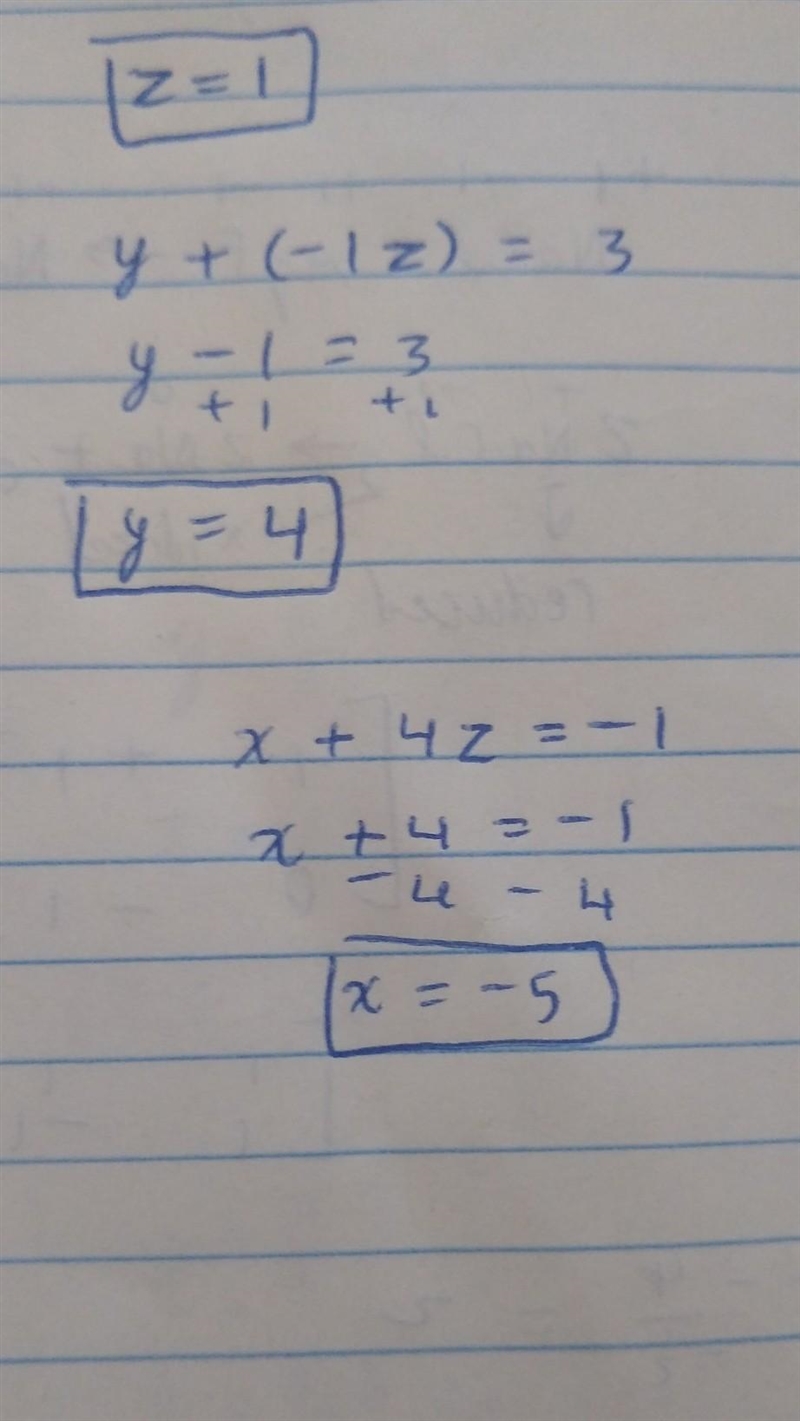 z = 1
y + (-1z) = 3
y - 1 = 3
+ 1 + 1
y = 4
x + 4z = -1
x + 4 = -1
- 4 - 4
x = -5